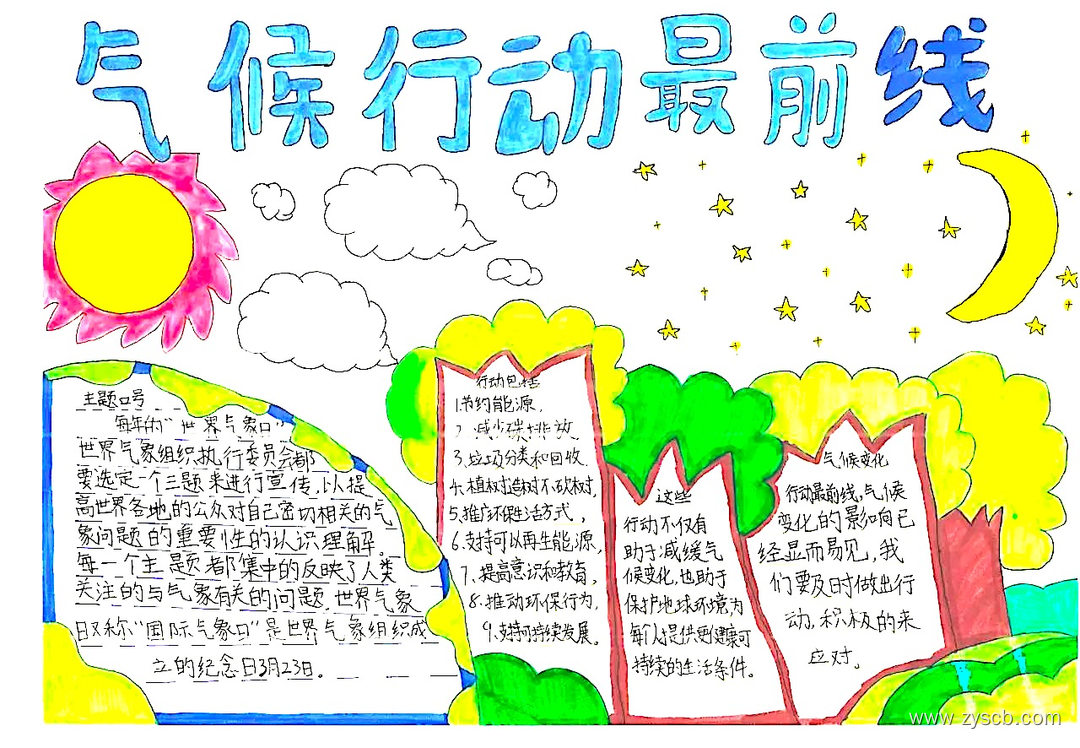 气候行动最前线
主题口号
每年的“世界气象日”
世界气象组织执行委员会都
要选定一个主题来进行宣传,以提
高世界各地的公众对自己密切相关的气
象问题的重要性的认识理解。
每一个主题都集中的反映了人类
关注的与气象有关的问题.世界气象
日又称“国际气象日”是世界气象组织成
立的纪念日3月23日。
行动包括
1.节约能源.
2.减少碳排放
3.垃圾分类和回收
4.植树造树不砍树,
5.推广环保生活方式,
6.支持可以再生能源,
7.提高意识和教育,
8.推动环保行为,
9.支持可持续发展.
这些
行动不仅有
助于减缓气
候变化,也助于
保护地球环境为
每个人提供更健康可
持续的生活条件.
气候变化
行动最前线,气候
变化的影响已
经显而易见,我
们要及时做出行
动,积极的来
应对.
www.zyscb.com